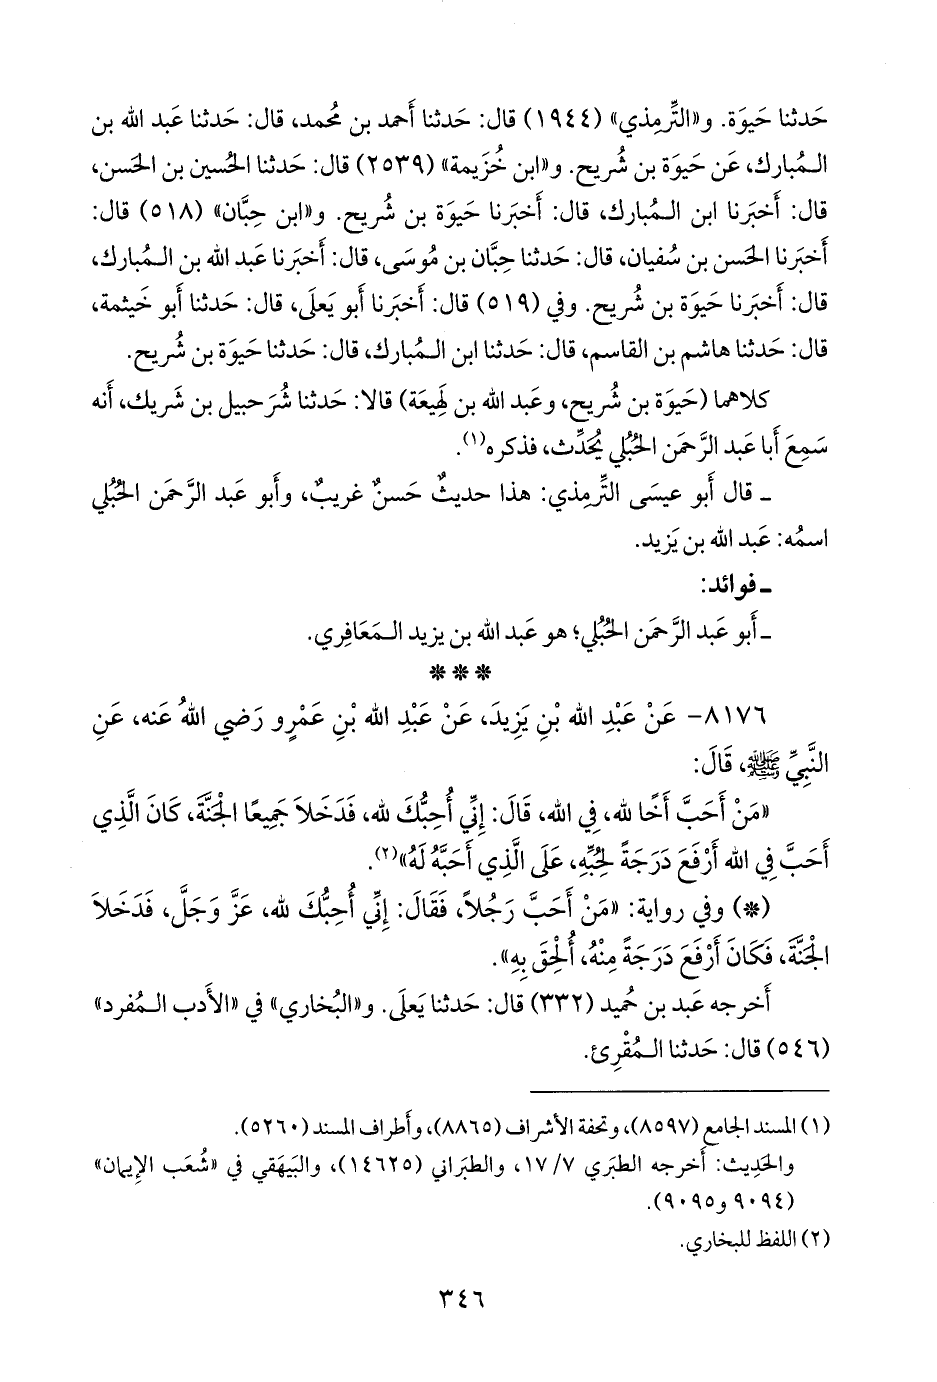 حَدثنا حَيوَة. و«التِّرمِذي» (١٩٤٤) قال: حَدثنا أَحمد بن مُحمد، قال: حَدثنا عَبد الله بن
المُبارك، عَن حَيوَة بن شُريح. و«ابن خُزيمة» (٢٥٣٩) قال: حَدثنا الحُسين بن الحَسن،
قال: أَخبَرنا ابن المُبارك، قال: أَخبَرنا حَيوَة بن شُريح. و«ابن حِبَّان» (٥١٨) قال:
أَخبَرنا الحَسن بن سُفيان، قال: حَدثنا حِبَّان بن مُوسَى، قال: أَخبَرنا عَبد الله بن المُبارك،
قال: أَخبَرنا حَيوَة بن شُريح. وفي (٥١٩) قال: أَخبَرنا أَبو يَعلَى، قال: حَدثنا أَبو خَيثمة،
قال: حَدثنا هاشم بن القاسم، قال: حَدثنا ابن المُبارك، قال: حَدثنا حَيوَة بن شُريح.
كلاهما (حَيوَة بن شُريح، وعَبد الله بن لَهِيعَة) قالا: حَدثنا شُرَحبيل بن شَريك، أَنه
سَمِعَ أَبا عَبد الرَّحمَن الحُبُلي يُحَدِّث، فذكره(١).
ـ قال أَبو عيسَى التِّرمِذي: هذا حديثٌ حَسنٌ غريبٌ، وأَبو عَبد الرَّحمَن الحُبُلي
اسمُه: عَبد الله بن يَزيد.
ـ فوائد:
ـ أَبو عَبد الرَّحمَن الحُبُلي؛ هو عَبد الله بن يزيد المَعَافِري.
* * *
٨١٧٦- عَنْ عَبْدِ الله بْنِ يَزِيدَ، عَنْ عَبْدِ الله بْنِ عَمْرٍو رَضي اللهُ عَنه، عَنِ
النَّبِيِّ ﷺ، قَالَ:
«مَنْ أَحَبَّ أَخًا لله، فِي الله، قَالَ: إِنِّي أُحِبُّكَ لله، فَدَخَلاَ جَمِيعًا الْجَنَّةَ، كَانَ الَّذِي
أَحَبَّ فِي الله أَرْفَعَ دَرَجَةً لِحُبِّهِ، عَلَى الَّذِي أَحَبَّهُ لَهُ»(٢).
(*) وفي رواية: «مَنْ أَحَبَّ رَجُلاً، فَقَالَ: إِنِّي أُحِبُّكَ لله، عَزَّ وَجَلَّ، فَدَخَلاَ
الْجَنَّةَ، فَكَانَ أَرْفَعَ دَرَجَةً مِنْهُ، أُلْحِقَ بِهِ».
أَخرجه عَبد بن حُميد (٣٣٢) قال: حَدثنا يَعلَى. و«البُخاري» في «الأَدب المُفرد»
(٥٤٦) قال: حَدثنا المُقْرِئ.
(١) المسند الجامع (٨٥٩٧)، وتحفة الأشراف (٨٨٦٥)، وأَطراف المسند (٥٢٦٠).
والحَدِيث؛ أَخرجه الطبَري ٧/ ١٧، والطبَراني (١٤٦٢٥)، والبَيهَقي في «شُعَب الإيمان»
(٩٠٩٤ و٩٠٩٥).
(٢) اللفظ للبخاري.
٣٤٦